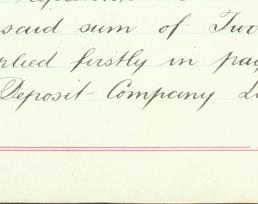 said sum of Two
plied firstly in pay
Deposit Company L